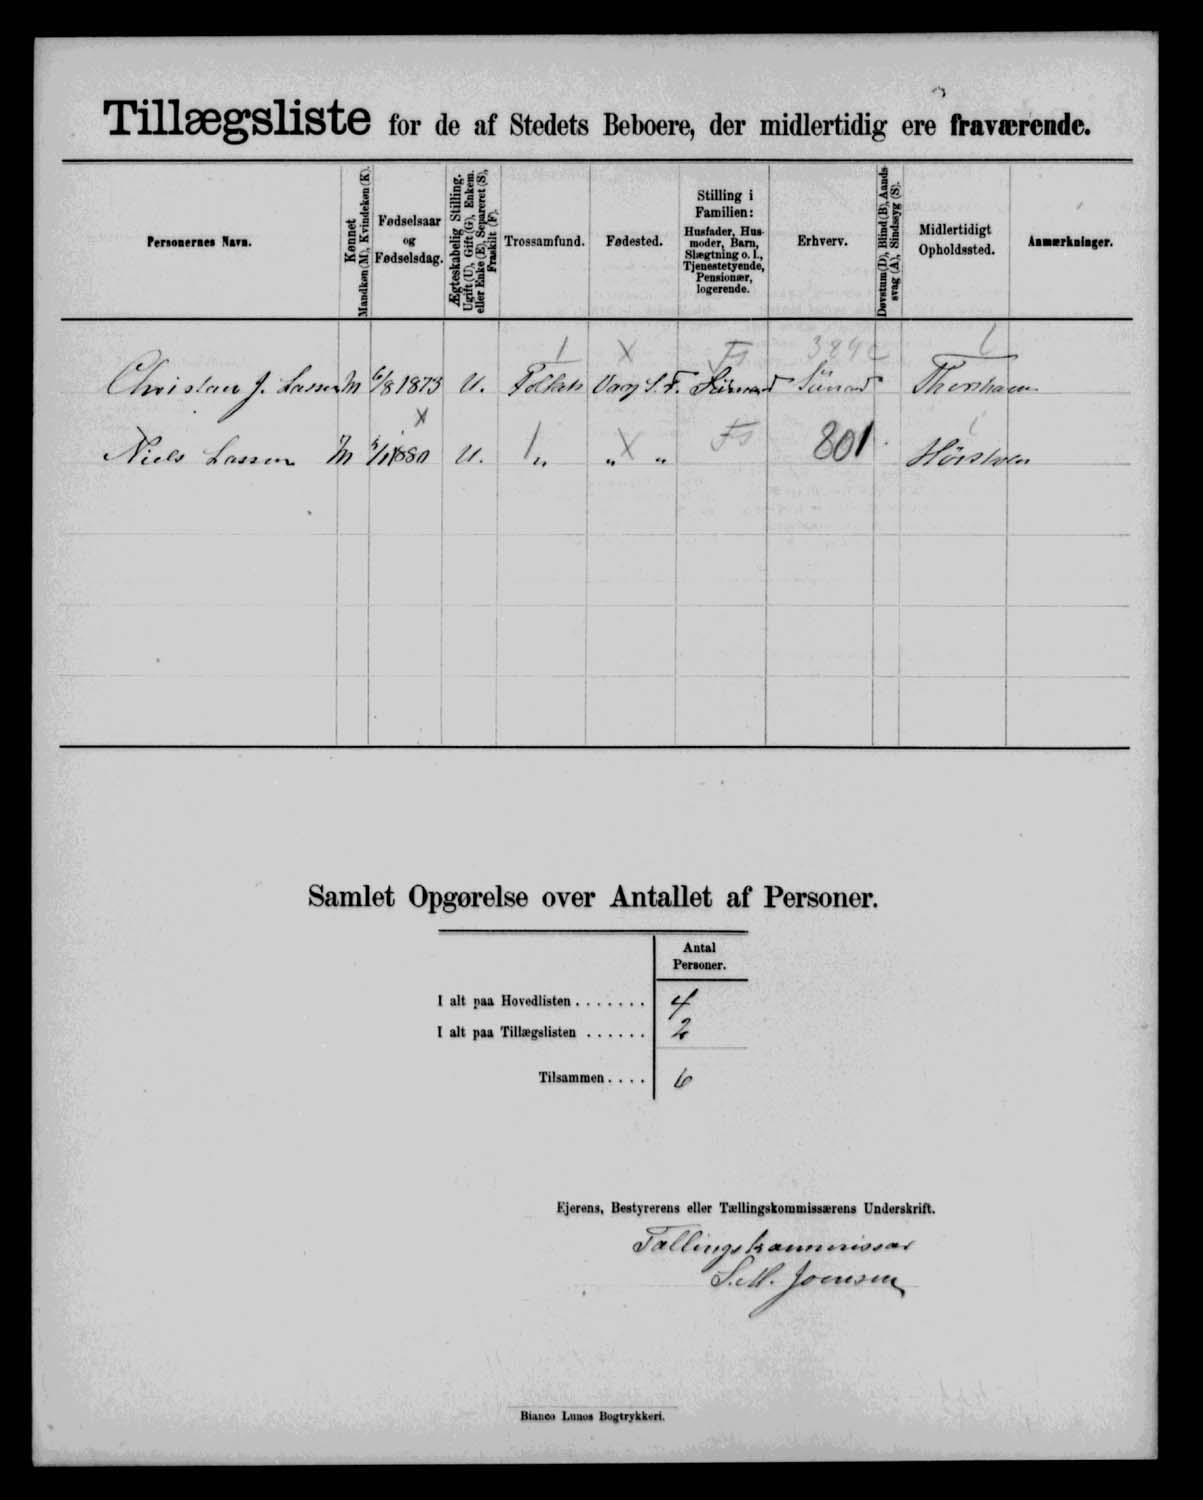 Tillægsliste for de af Stedets Beboere, der midlertidig ere fraværende.
Personernes Navn.
Kønnet
Mandkøn (M), Kvindekøn (K).
Fødselsaar
og
Fødselsdag.
Ægteskabelig Stilling.
Ugift (U), Gift (G), Enkem.
eller Enke (E), Separeret (S),
Fraskilt (F).
Trossamfund.
Fødested.
Stilling i
Familien:
Husfader, Hus-
moder, Barn,
Slægtning o. l.,
Tjenestetyende,
Pensionær,
logerende.
Erhverv.
Døvstum (D), Blind (B), Aands-
svag (A), Sindssyg (S).
Midlertidigt
Opholdssted.
Anmærkninger.
Christan J. Lassen M 6/8 1873 U. Folkek Vaag S. F.
Niels Lassen M 1880 U. „ „ „ 801
Samlet Opgørelse over Antallet af Personer.
Antal
Personer.
I alt paa Hovedlisten . . . . . . . 4
I alt paa Tillægslisten . . . . . . 2
Tilsammen . . . . 6
Ejerens, Bestyrerens eller Tællingskommissærens Underskrift.
Tællingskommissær
S. M. Joensen
Bianco Lunos Bogtrykkeri.